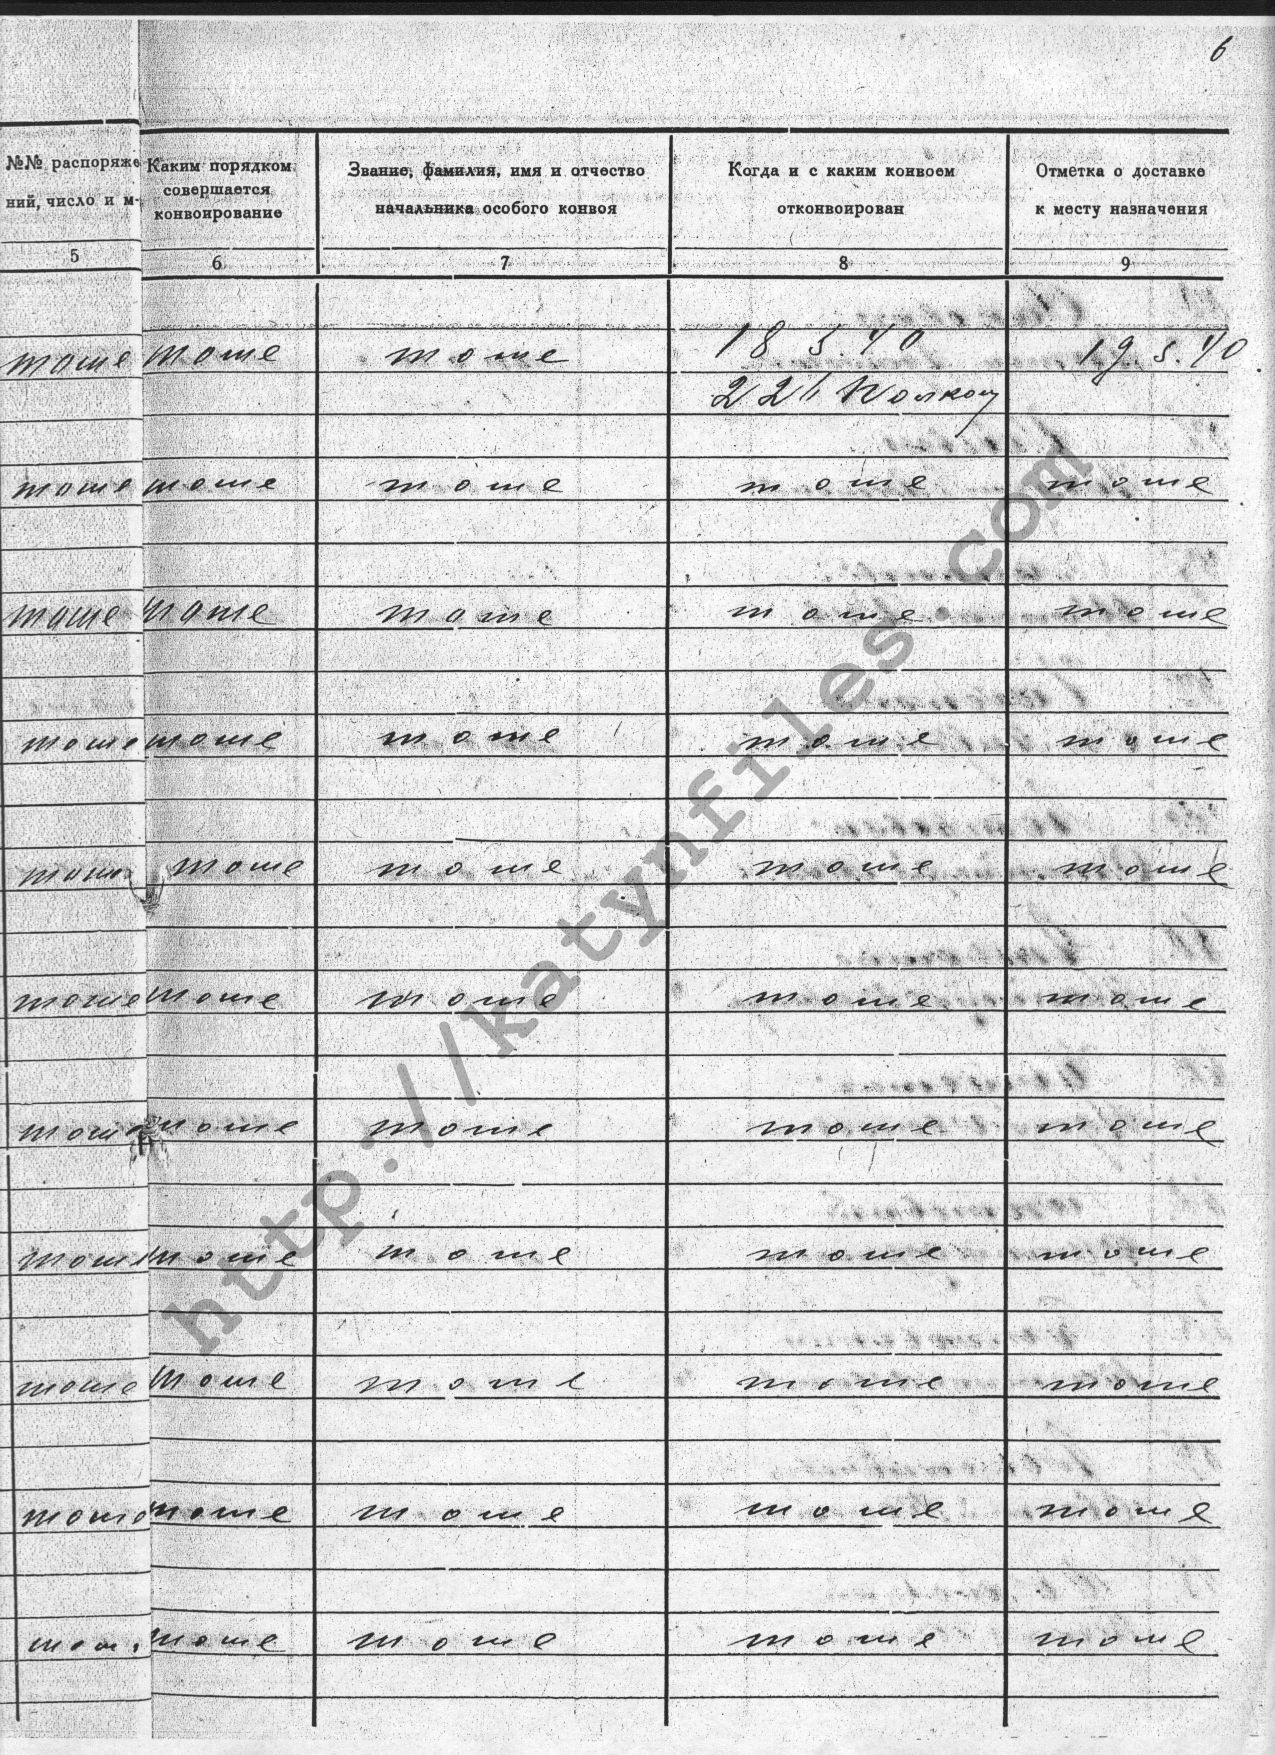 6
№№ распоряже
ний, число и м-
Каким порядком
совершается
конвоирование
Звание, фамилия, имя и отчество
начальника особого конвоя
Когда и с каким конвоем
отконвоирован
Отметка о доставке
к месту назначения
5 6 7 8 9
тоже тоже тоже 18 5.40 19.5.40
тоже тоже тоже тоже тоже
тоже тоже тоже тоже тоже
тоже тоже тоже тоже тоже
тоже тоже тоже тоже тоже
тоже тоже тоже тоже тоже
тоже тоже тоже тоже тоже
тоже тоже тоже тоже тоже
тоже тоже тоже тоже тоже
тоже тоже тоже тоже тоже
тоже тоже тоже тоже
http://katynfiles.com